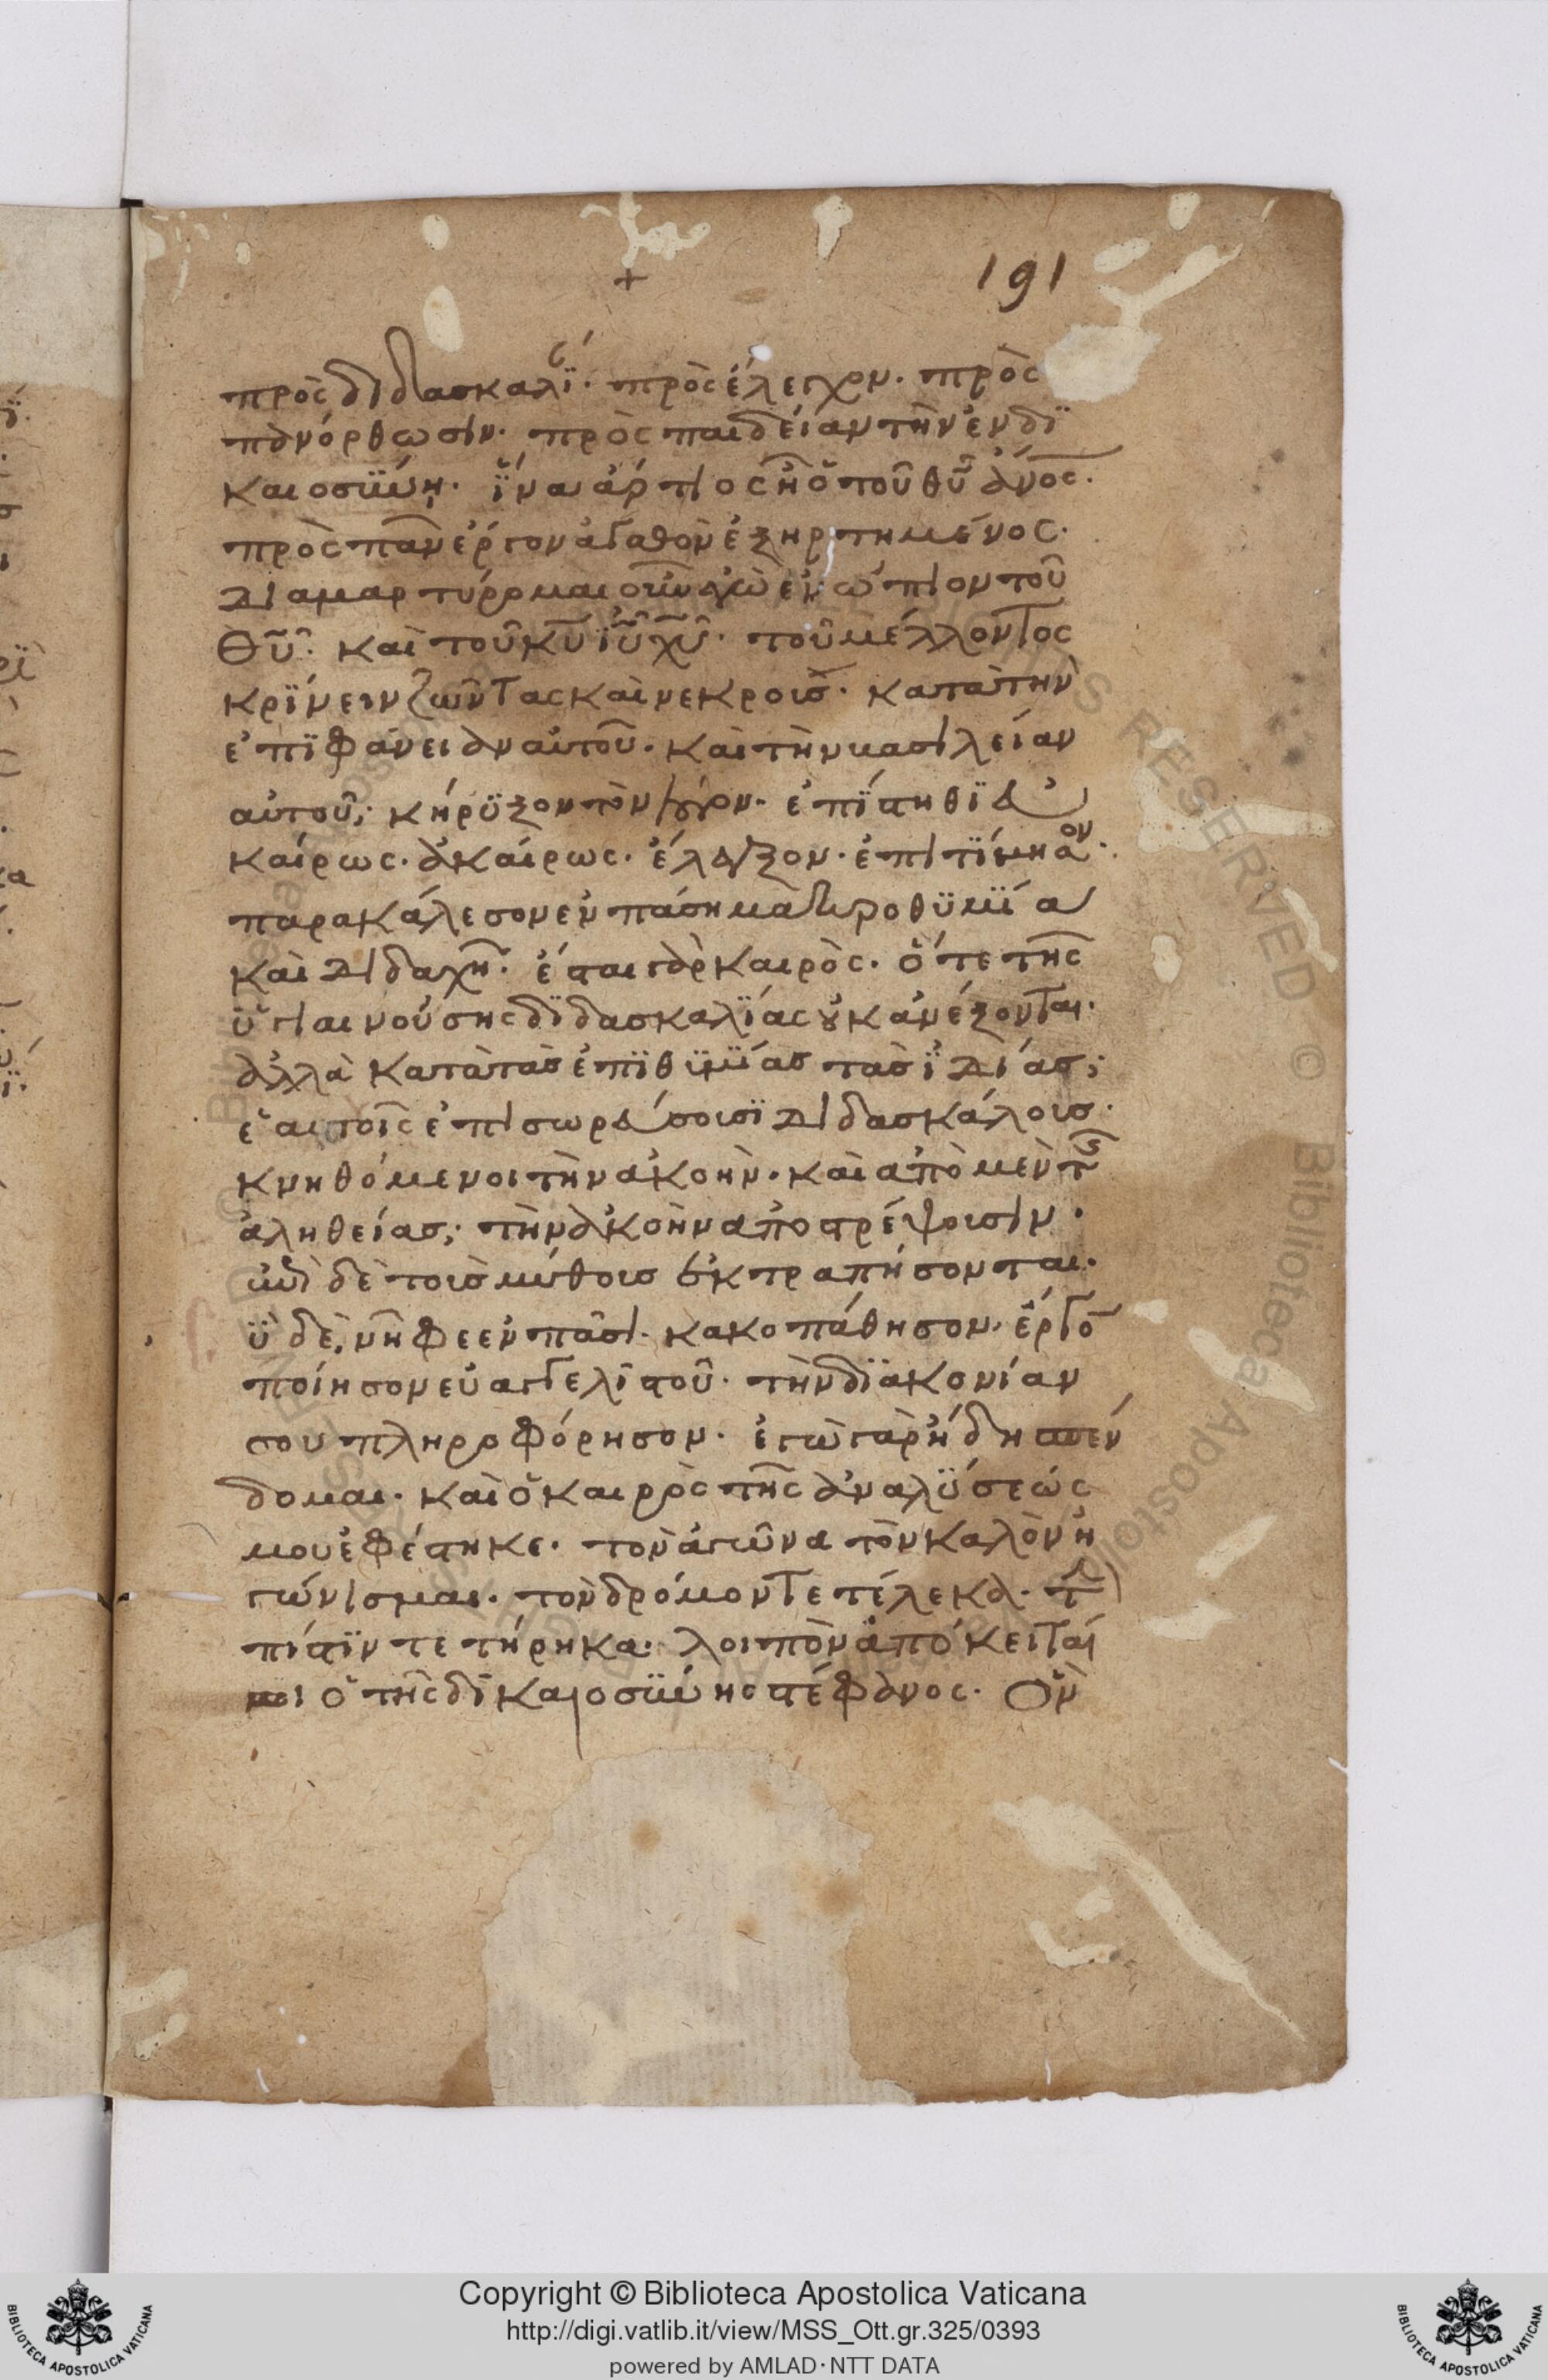 +
191
πρὸς διδασκαλΐ. πρὸς ἔλεγχον. πρὸς
πανόρθωσιν. πρὸς παιδείαν τὴν ἐν δϊ
καιοσϋνη. ἵνα ἄρτιος ἦ ὁ τοῦ θῦ ἄνος.
πρὸς πᾶν ἔργον ἀγαθὸν ἐξηρτημένος.
Διαμαρτύρομαι οὖν ἐγὼ ἐνώπιον τοῦ
Θῦ. καὶ τοῦ κῦ ἰῦ χῦ. τοῦ μέλλοντος
κρΐνειν ζῶντας καὶ νεκρούς. κατὰ τὴν
ἐπϊφάνειαν αὐτοῦ. καὶ τὴν βασιλείαν
αὐτοῦ; κήρϋξον τὸν λόγον. ἐπΐστηθϊ εὐ
καίρως. ἀκαίρως. ἔλεγξον. ἐπιτΐμησον.
παρακάλεσον ἐν πάση μακροθϋμΐα
καὶ Διδαχῆ. ἔσται γὰρ καιρὸς. ὅτε τῆς
ὑγιαινούσης δϊδασκαλΐας οὐκ ἀνέξονται.
ἀλλὰ κατὰ τὰς ἐπϊθϋμΐας τὰς ἰΔίας;
ἑαυτοῖς ἐπισωρεύσουσϊ Διδασκάλους.
κνηθόμενοι τὴν ἀκοὴν. καὶ ἀπὸ μὲν τῆς
ἀληθείας; τὴν ἀκοὴν ἀποστρέψουσιν.
ἐπὶ δὲ τοὺς μύθους ἐκτραπήσονται.
ϋ δὲ, νῆφε ἐν πᾶσι. κακοπάθησον. ἔργο
ποίησον εὐαγγελϊστοῦ. τὴν δϊακονίαν
σου πληροφόρησον. ἐγὼ γὰρ ἤδη σπέν
δομαι. καὶ ὁ καιρὸς τῆς ἀναλϋσεώς
μου ἐφέστηκε. τὸν ἀγῶνα τὸν καλὸν ἠ
γώνισμαι. τὸν δρόμον τετέλεκα. τὴν
πίστϊν τετήρηκα. λοιπὸν ἀπόκειταί
μοι ὁ τῆς δϊκαιοσϋνης στέφανος. Ὃν
Copyright © Biblioteca Apostolica Vaticana
http://digi.vatlib.it/view/MSS_Ott.gr.325/0393
powered by AMLAD·NTT DATA